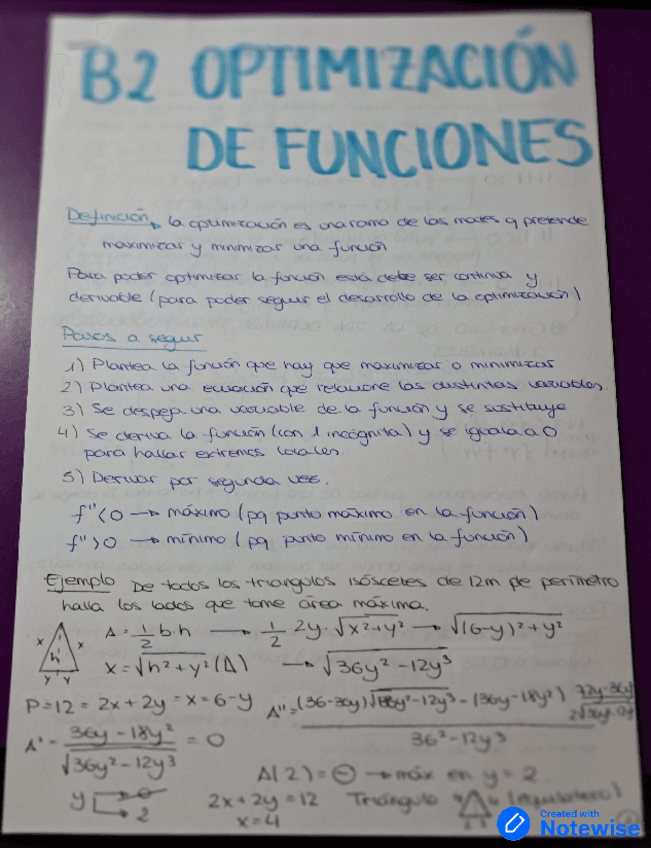 B2 OPTIMIZACIÓN
DE FUNCIONES
Definición → la optimización es una rama de las mates q pretende
maximizar y minimizar una función
Para poder optimizar la función está debe ser continua y
derivable (para poder seguir el desarrollo de la optimización)
Pasos a seguir
1) Plantea la función que hay que maximizar o minimizar
2) Plantea una ecuación que relacione las distintas variables.
3) Se despeja una variable de la función y se sustituye
4) Se deriva la función (con 1 incógnita) y se iguala a 0
para hallar extremos locales.
5) Derivar por segunda vez.
f''<0 → máximo (pq punto máximo en la función)
f''>0 → mínimo (pq punto mínimo en la función)
Ejemplo De todos los triangulos isósceles de 12m de perímetro
halla los lados que tome área máxima.
x x h y y A = 1/2 b·h → 1/2 2y·√x²+y² → √(6-y)²+y²
x = √h²+y² (A) → √36y²-12y³
P=12 = 2x+2y = x = 6-y A''= (36-36y)√36y²-12y³ - (36y-18y²) 72y-36y² / 2√36y²-12y³
A' = 36y-18y² / √36y²-12y³ = 0
36²-12y³
A(2) = ⊖ → máx en y = 2
y 0 2 2x+2y=12 Triángulo 4 4 (equilátero)
x=4
Created with
Notewise